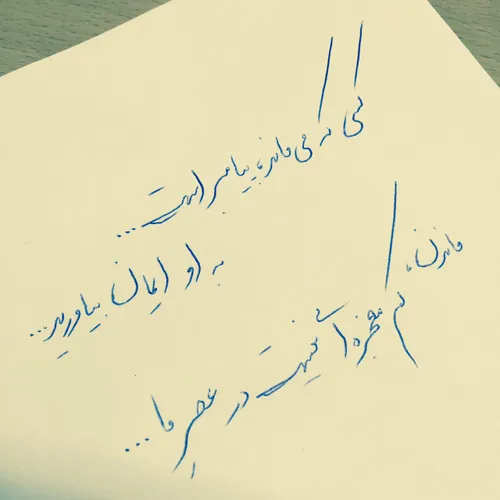 کسی که می‌ماند، پیامبر است...
به او ایمان بیاورید...
ماندن، کم معجزه‌ای نیست در عصرِ ما...